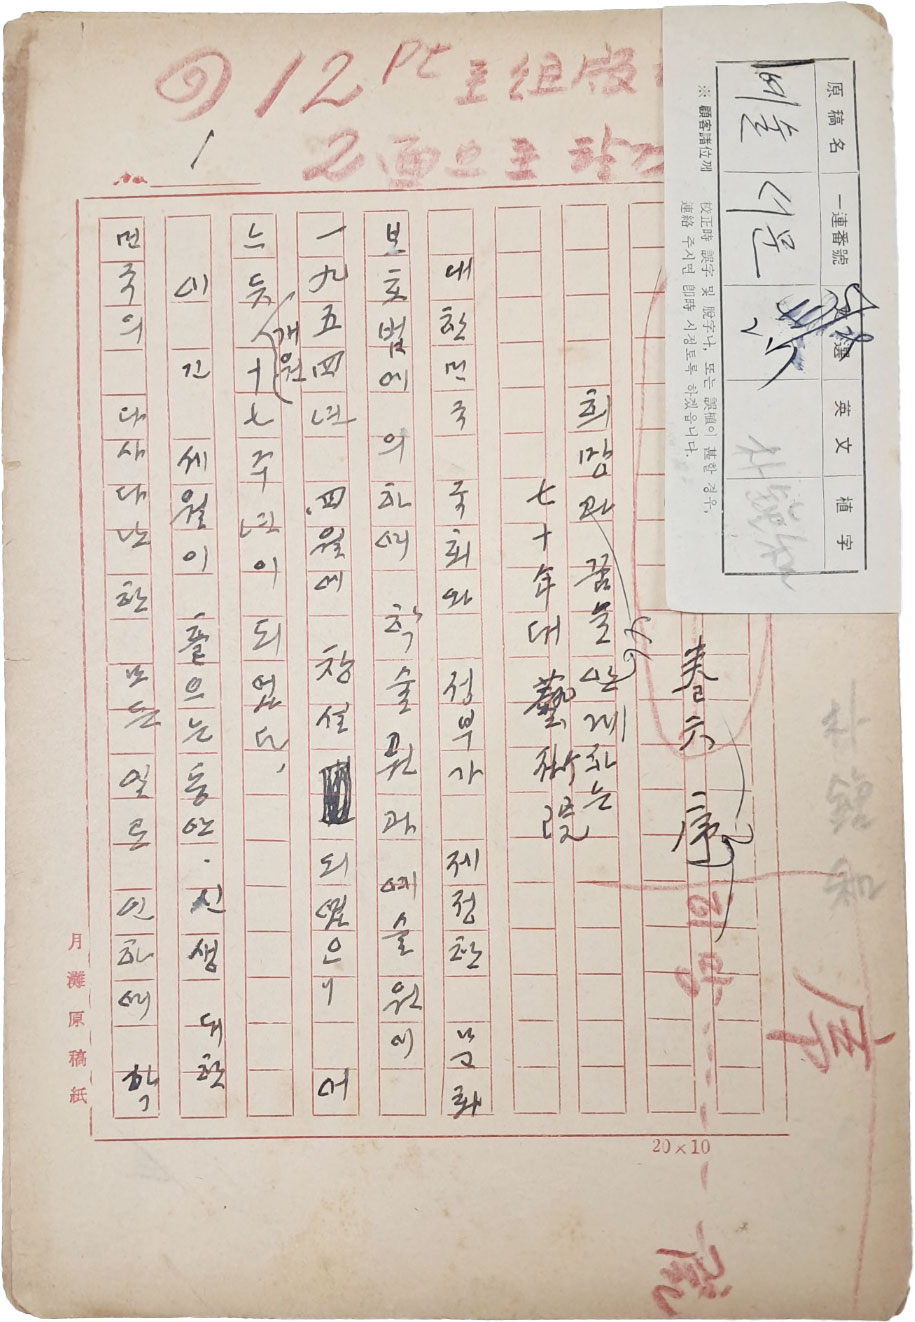 12 Pt 로 組版
2 面으로
No. 1
原稿名 一連番號 選 英文 植字
예술 서문
※ 顧客諸位께
校正時 誤字 및 脫字나, 또는 誤植이 甚한 경우,
連絡 주시면 卽時 시정토록 하겠읍니다.
朴鍾和
序
희망
序
희망과 꿈을 안게하는
七十年대 藝術院
대한민국 국회와 정부가 제정한 문화
보호법에 의하여 학술원과 예술원이
一九五四년 四월에 창설 되였으니 어
느듯 개원 十七주년이 되였다.
이 긴 세월이 흘으는 동안·신생 대한
민국의 다사다난한 모든 일로 인하여 학
月灘原稿紙
20×10